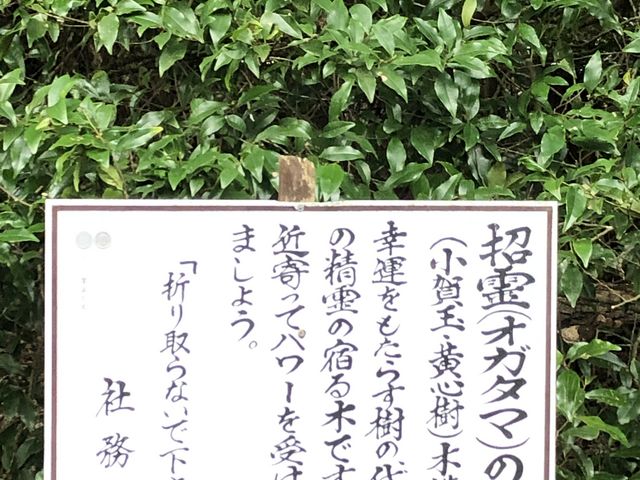 招霊(オガタマ)の
(小賀玉・黄心樹)木
幸運をもたらす樹の代
の精霊の宿る木です
近寄ってパワーを受け
ましょう。
「折り取らないで下
社務